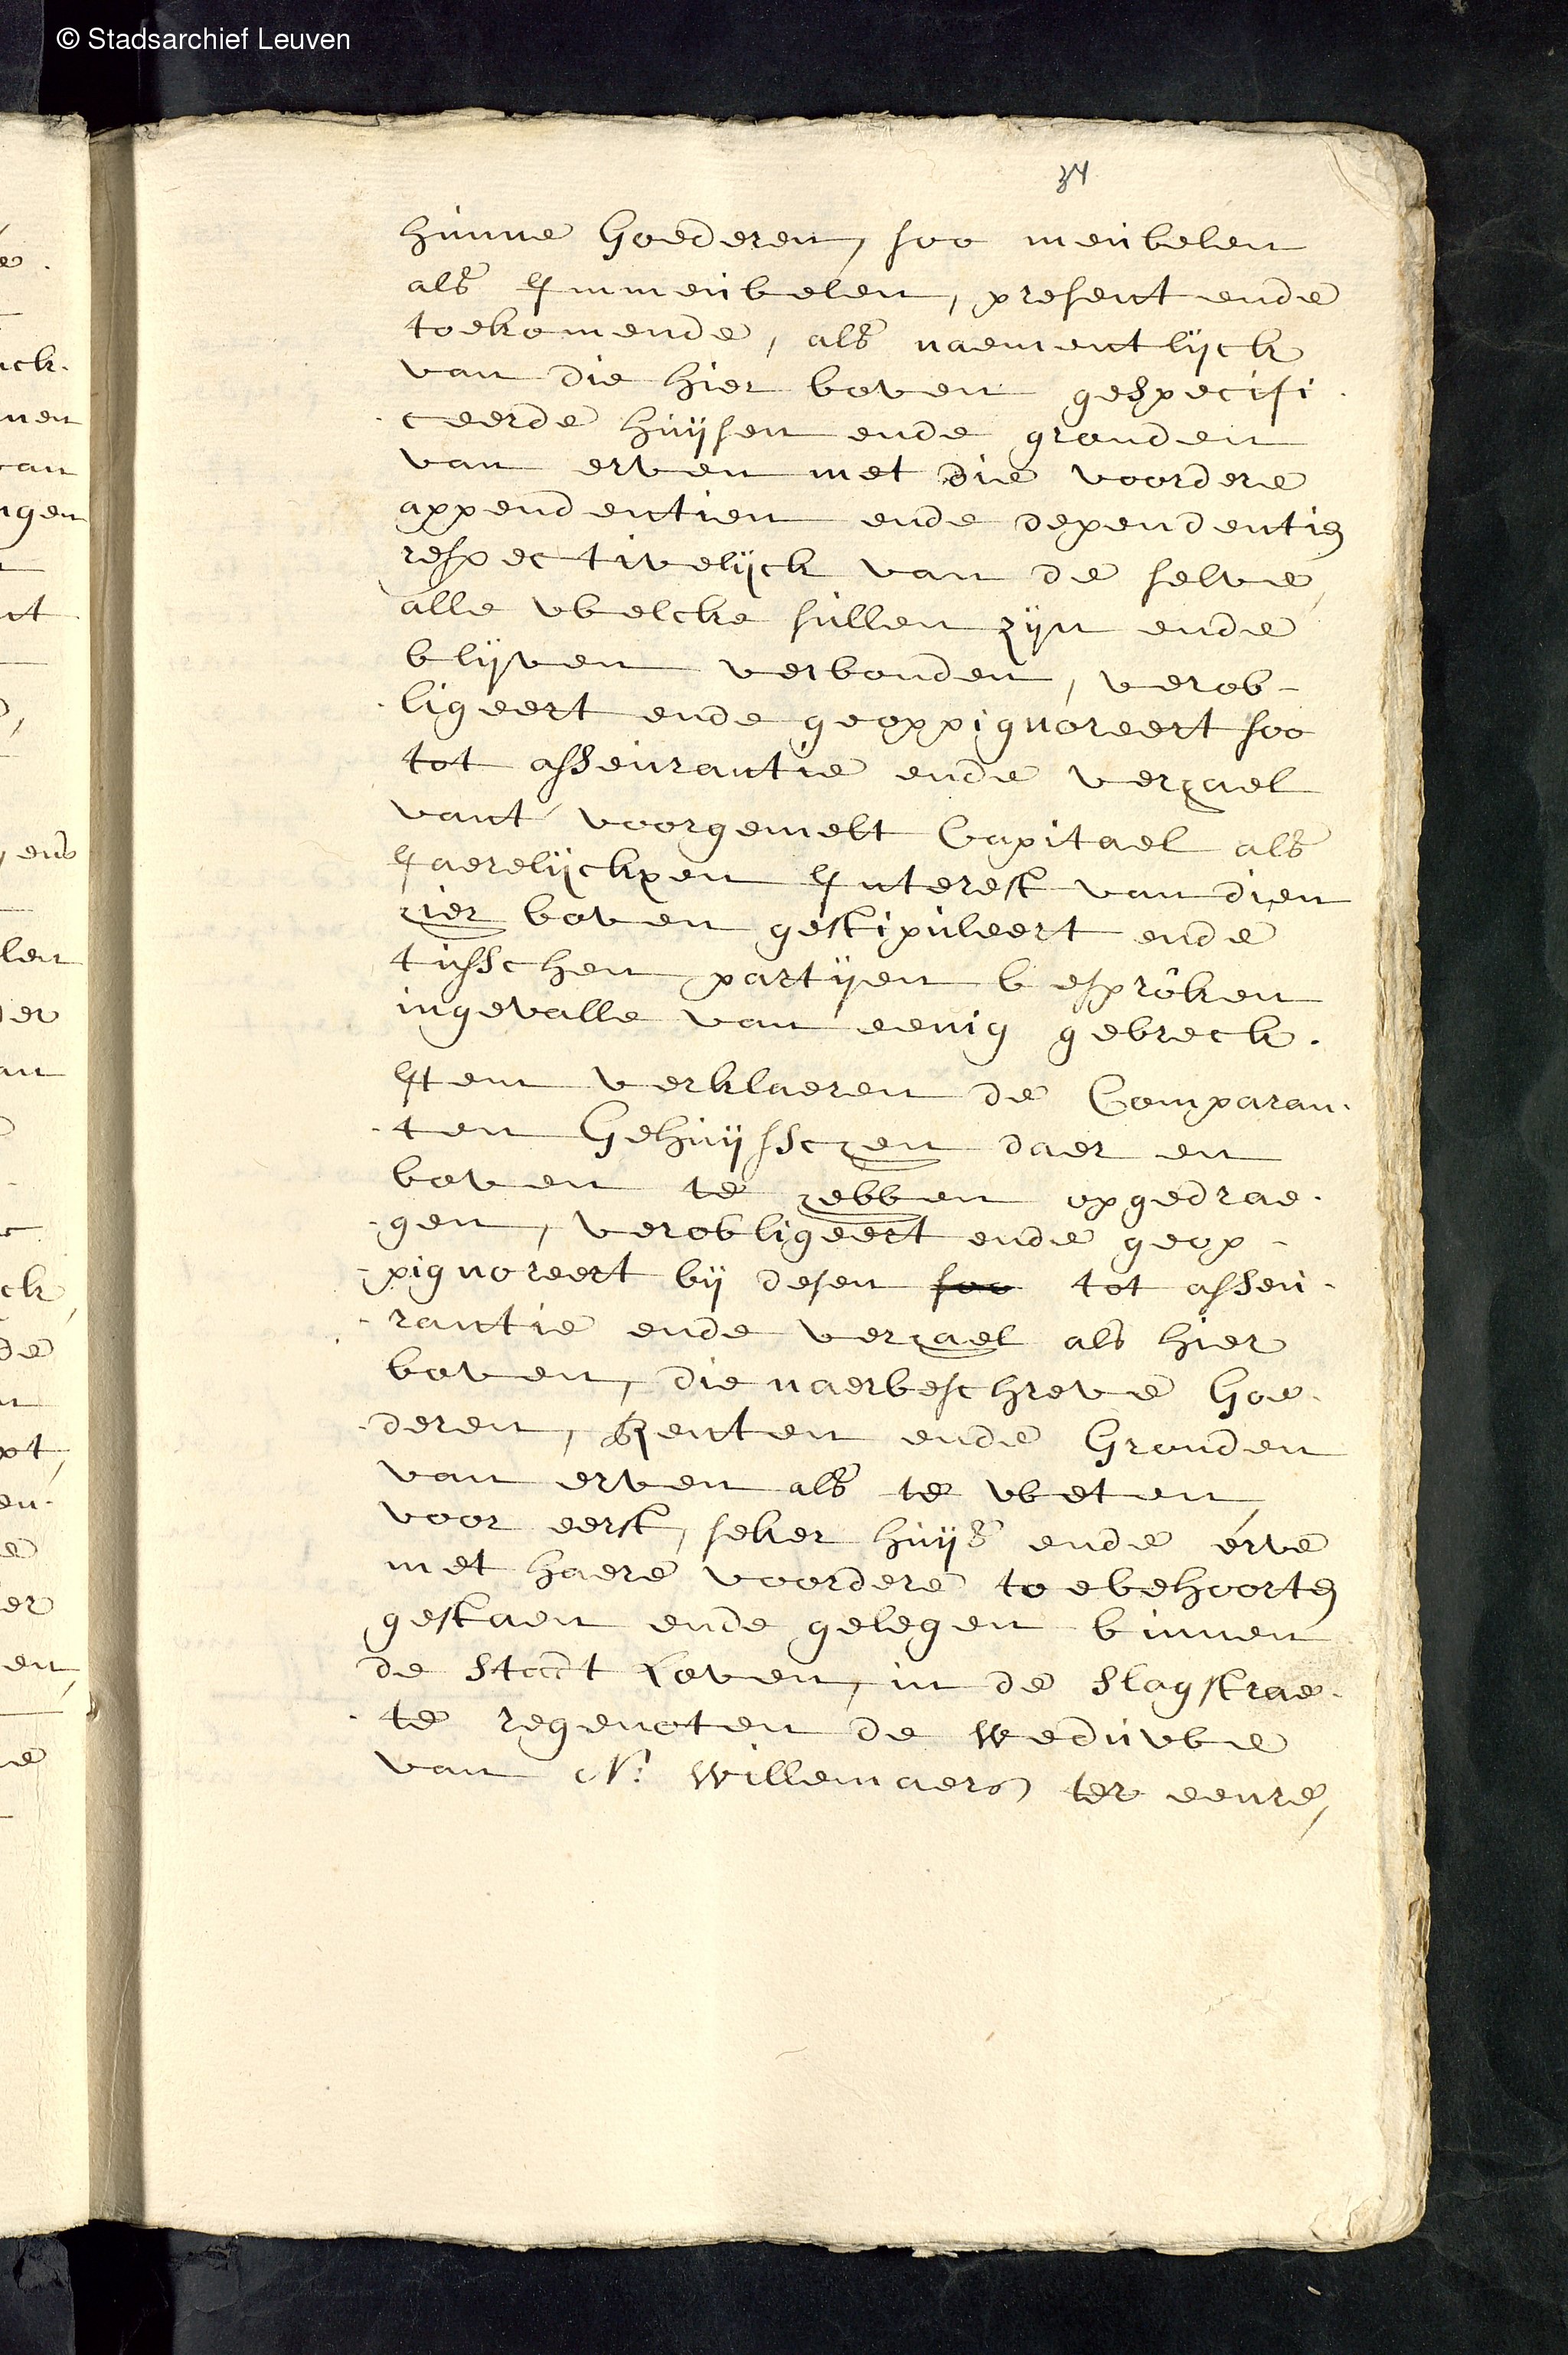 © Stadsarchief Leuven
34
hunne Goederen, soo meubelen
als Immeubelen, present ende
toekomende, als naementlijck
van die hier boven gespecifi
ceerde huijsen ende gronden
van erven met die voordere
appendentien ende dependentien
respectivelijck van de selve,
alle welcke sullen zijn ende
blijven verbonden, verob-
ligeert ende geoppignoreert soo
tot asseurantie ende verhael
vant voorgemelt Capitael als
Jaerelijckhen Interest van dien
hier boven gestipuleert ende
tusschen partijen besproken
ingevalle van eenig gebreck.
Item verklaeren de Comparan-
ten Gehuijsschen daer en
boven te hebben opgedrae-
gen, verobligeert ende geop-
pignoreert bij desen soo tot asseu-
rantie ende verhael als hier
boven, die naerbeschreve Goe-
deren, Renten ende Gronden
van erven als te weten,
voor eerst, seker huijs ende erve
met haere voordere toebehoorten
gestaen ende gelegen binnen
de Stadt Loven, in de Slagstrae-
te regenoten de Weduwe
van N: Willemaers ter eenre,